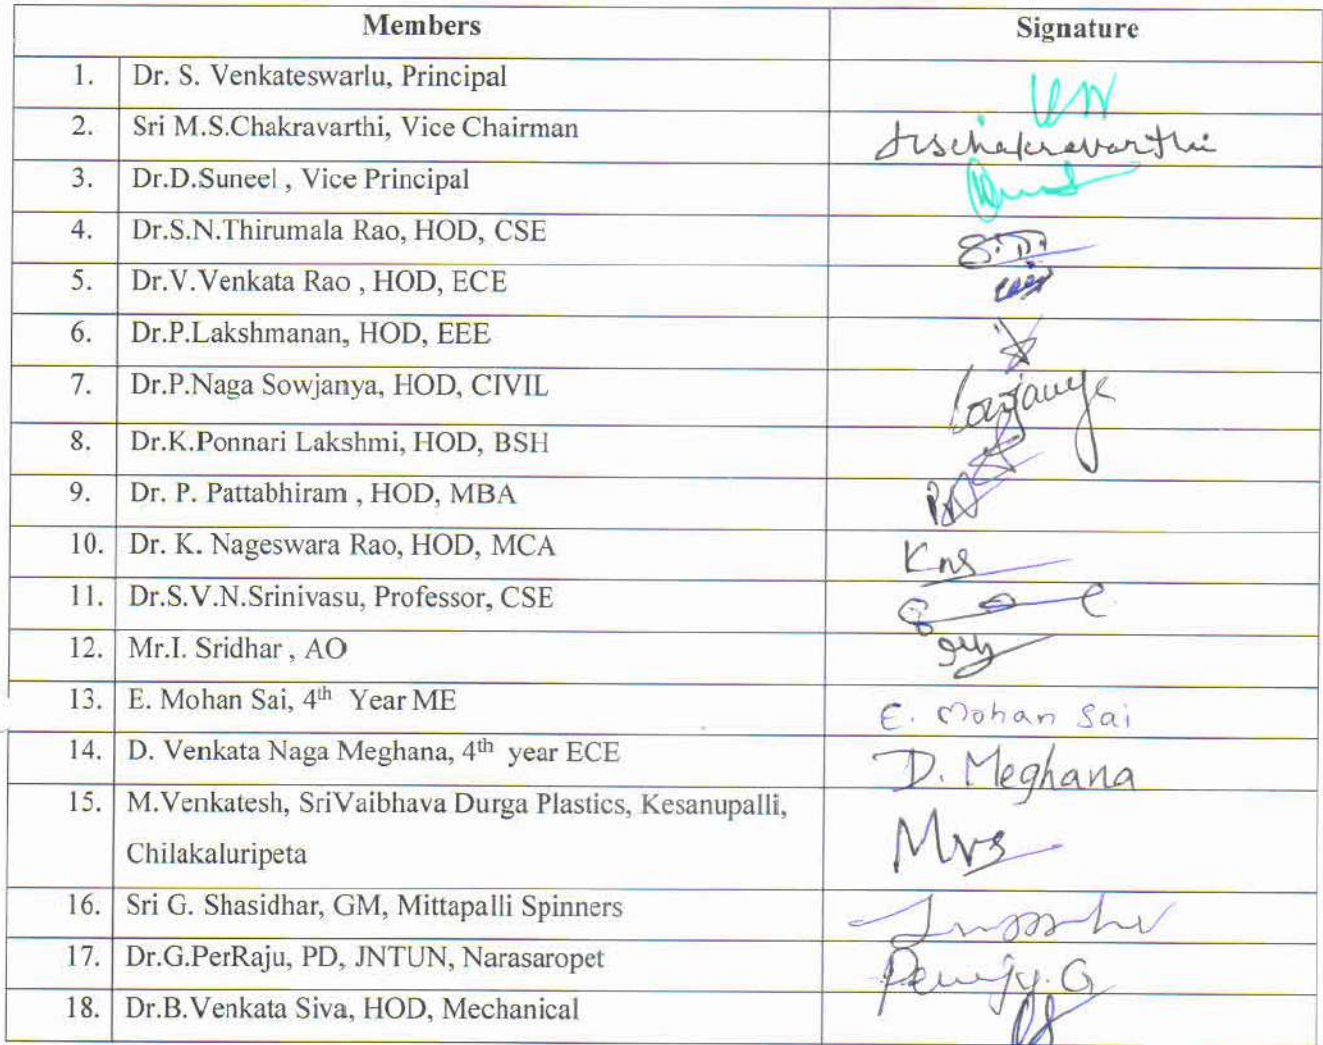 Members Signature
1. Dr. S. Venkateswarlu, Principal
2. Sri M.S.Chakravarthi, Vice Chairman
3. Dr.D.Suneel , Vice Principal
4. Dr.S.N.Thirumala Rao, HOD, CSE
5. Dr.V.Venkata Rao , HOD, ECE
6. Dr.P.Lakshmanan, HOD, EEE
7. Dr.P.Naga Sowjanya, HOD, CIVIL
8. Dr.K.Ponnari Lakshmi, HOD, BSH
9. Dr. P. Pattabhiram , HOD, MBA
10. Dr. K. Nageswara Rao, HOD, MCA
11. Dr.S.V.N.Srinivasu, Professor, CSE
12. Mr.I. Sridhar , AO
13. E. Mohan Sai, 4th Year ME E. Mohan Sai
14. D. Venkata Naga Meghana, 4th year ECE D. Meghana
15. M.Venkatesh, SriVaibhava Durga Plastics, Kesanupalli,
Chilakaluripeta
16. Sri G. Shasidhar, GM, Mittapalli Spinners
17. Dr.G.PerRaju, PD, JNTUN, Narasaropet
18. Dr.B.Venkata Siva, HOD, Mechanical